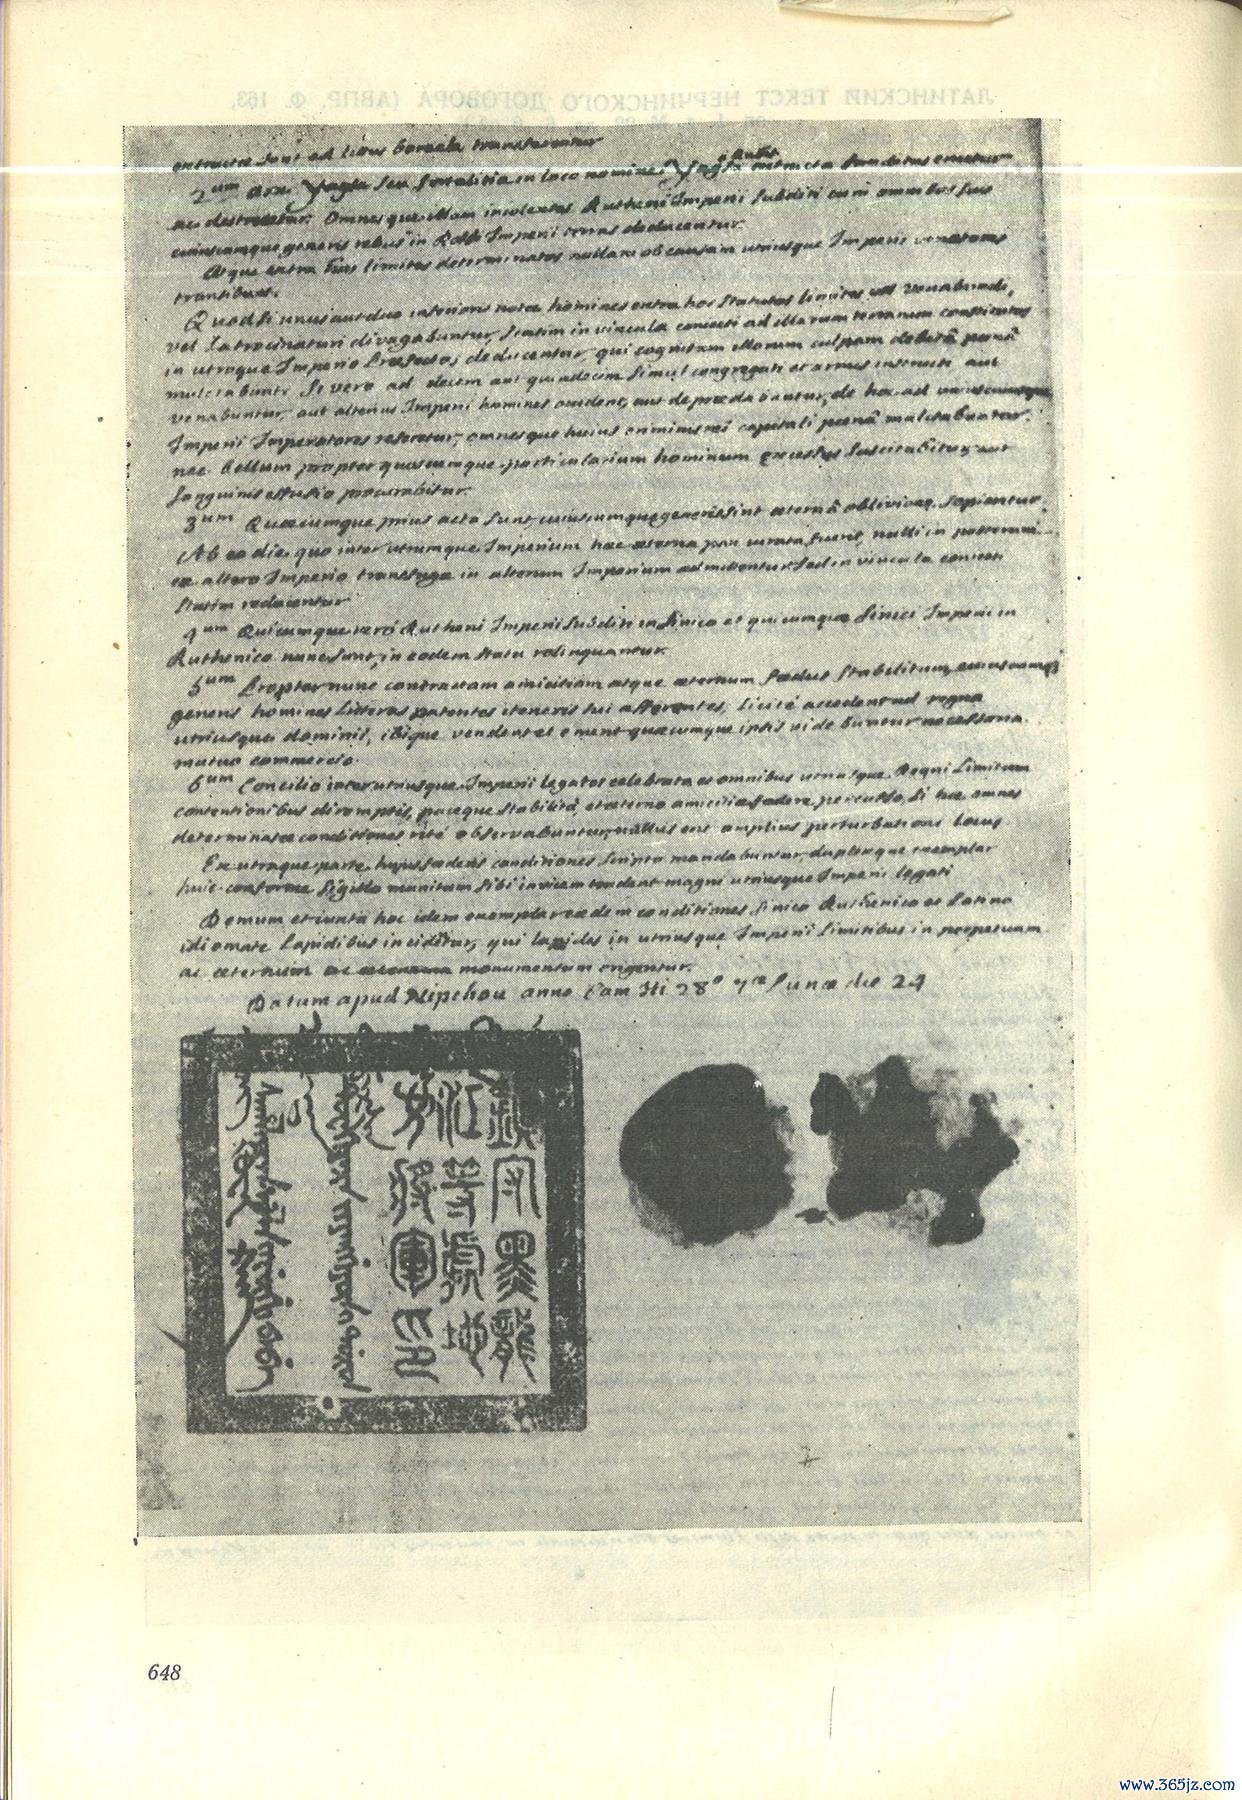 ЛАТИНСКИЙ ТЕКСТ НЕРЧИНСКОГО ДОГОВОРА (АВПР, Ф. 163,
extructae sunt ad litus boreale transferentur
2um Arx Yagsa seu fortalitia in loco nomine Yagsa extructa funditus eruetur
ac destruetur. Omnesque illam incolentes Rutheni Imperii subditi cum omnibus suis
cuiuscumque generis rebus in Russi Imperii terras deducentur.
Atque extra hos limites determinatos nullam ob causam utriusque Imperii venatores
transibunt.
Quod si unus aut duo inferioris notae homines extra hos statutos limites vel venabundi,
vel latrocinaturi divagabuntur, statim in vincula coniecti ad illarum terrarum constitutos
in utroque Imperio Praefectos deducentur, qui cognitam illorum culpam debitâ poenâ
mulctabunt. Si vero ad decem aut quindecim simul congregati et armis instructi aut
venabuntur, aut alterius Imperii homines occident, aut depraedabuntur, de hoc ad
Imperii Imperatores referetur, omnesque huius criminis rei capitali poenâ mulctabuntur.
nec bellum propter quoscumque particularium hominum excessus suscitabitur, aut
sanguinis effusio procurabitur.
3um Quaecumque prius acta sunt, cuiuscumque generis sint aeternâ oblivione sopiantur.
Ab eo die quo inter utrumque Imperium haec aeterna pax iurata fuerit, nulli in posterum
ex altero Imperio transfugae in alterum Imperium admittentur: Sed in vincula coniecti
statim reducentur
4um Quicumque vero Rutheni Imperii subditi in Sinico et quicumque Sinici Imperii in
Ruthenico nunc sunt, in eodem statu relinquantur.
5um Propter nunc contractam amicitiam atque aeternum foedus stabilitum,
generis homines litteras patentes iteneris sui afferentes, licité accedent ad regna
utriusque dominii, ibique vendent et ement quaecumque ipsis videbuntur necessaria
mutuo commercio.
6um Concilio inter utriusque Imperii legatos celebrato et omnibus utriusque Regni limitum
contentionibus diremptis, paceque stabilitâ, et aeterno amicitiae foedere percusso, si hae omnes
determinatae conditiones rité observabuntur, nullus erit amplius perturbationi locus
Ex utraque parte hujus foederis conditiones scripto mandabuntur, duplexque exemplar
huic conforme sigillo munitum sibi invicem tradent magni utriusque Imperii legati
Demum et iuxta hoc idem exemplar eaedem conditiones Sinico Ruthenico et Latino
idiomate lapidibus incidetur, qui lapides in utriusque Imperii limitibus in perpetuum
ac aeternum monumentum erigentur.
Datum apud Nipchou anno Cam Hi 28o 7ae Lunae die 24
鎮守黑龍
江等處地
方將軍印
648
www.365jz.com